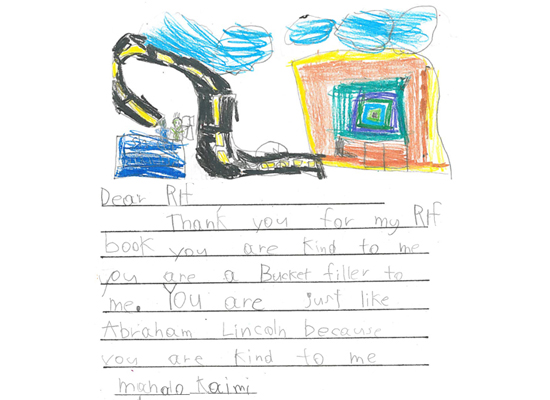 Dear RIF
Thank you for my RIF
book you are kind to me
you are a Bucket filler to
me. You are just like
Abraham Lincoln because
you are kind to me
mahalo Kaimi